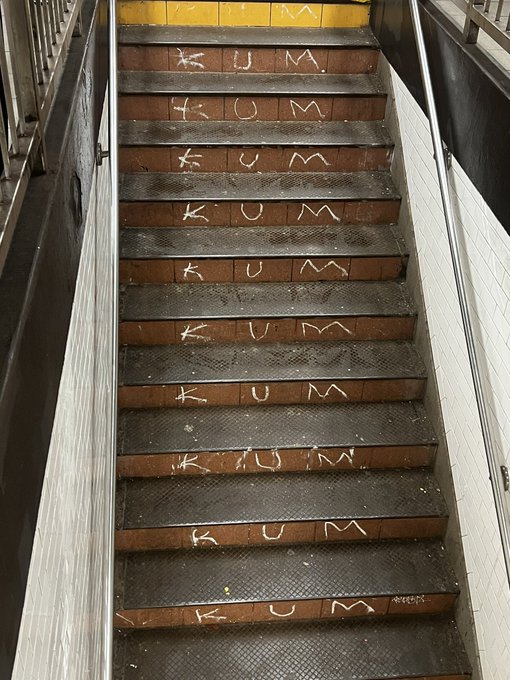 K U M
K U M
K U M
K U M
K U M
K U M
K U M
K U M
K U M
K U M
K U M